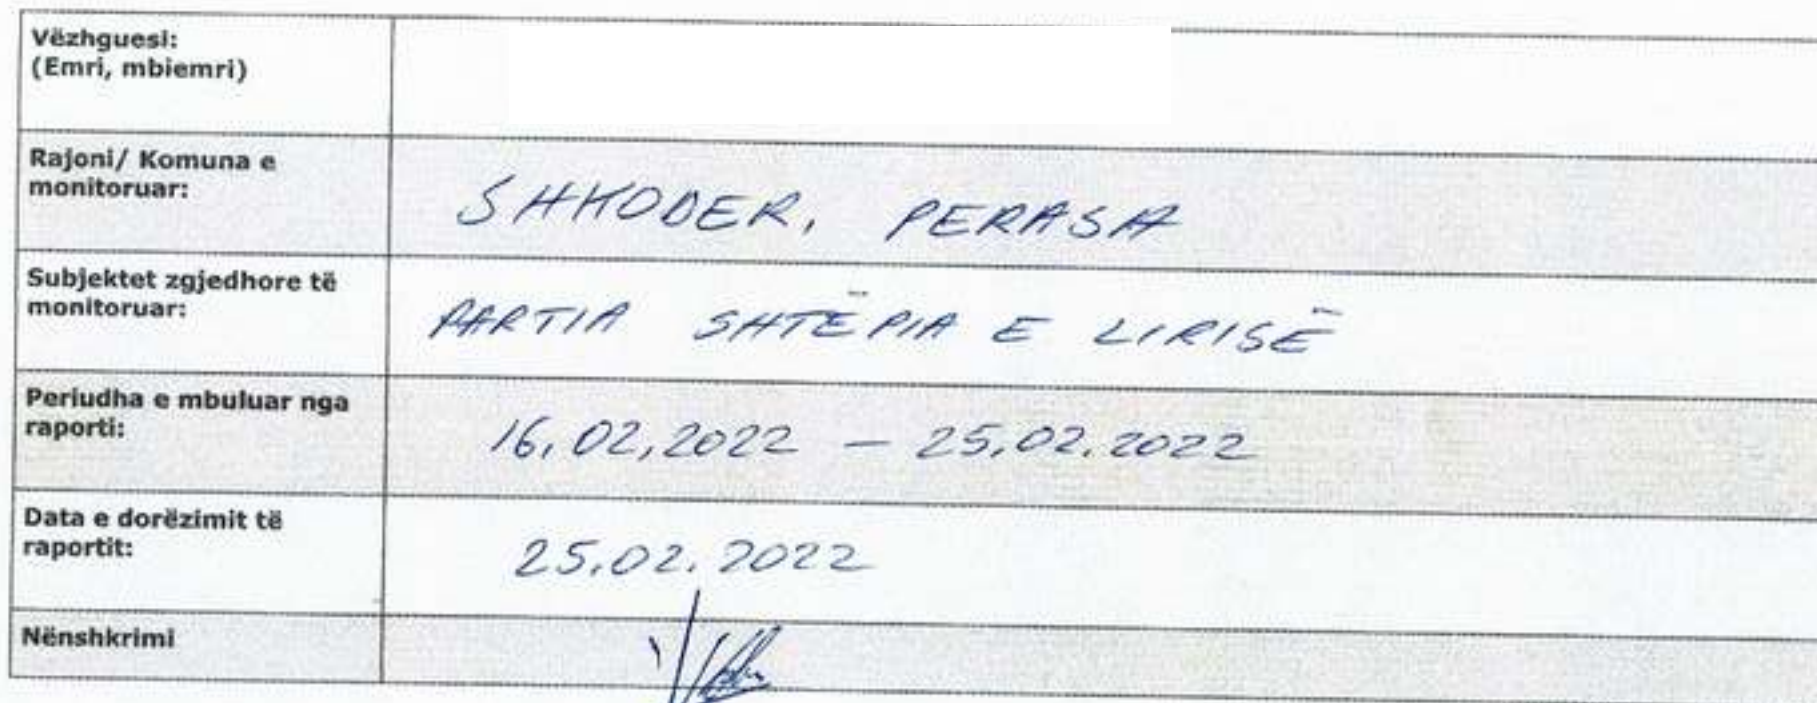 Vëzhguesi:
(Emri, mbiemri)
Rajoni/ Komuna e
monitoruar:
SHKODER, PERASA
Subjektet zgjedhore të
monitoruar:
PARTIA SHTËPIA E LIRISË
Periudha e mbuluar nga
raporti:
16.02.2022 – 25.02.2022
Data e dorëzimit të
raportit:
25.02.2022
Nënshkrimi